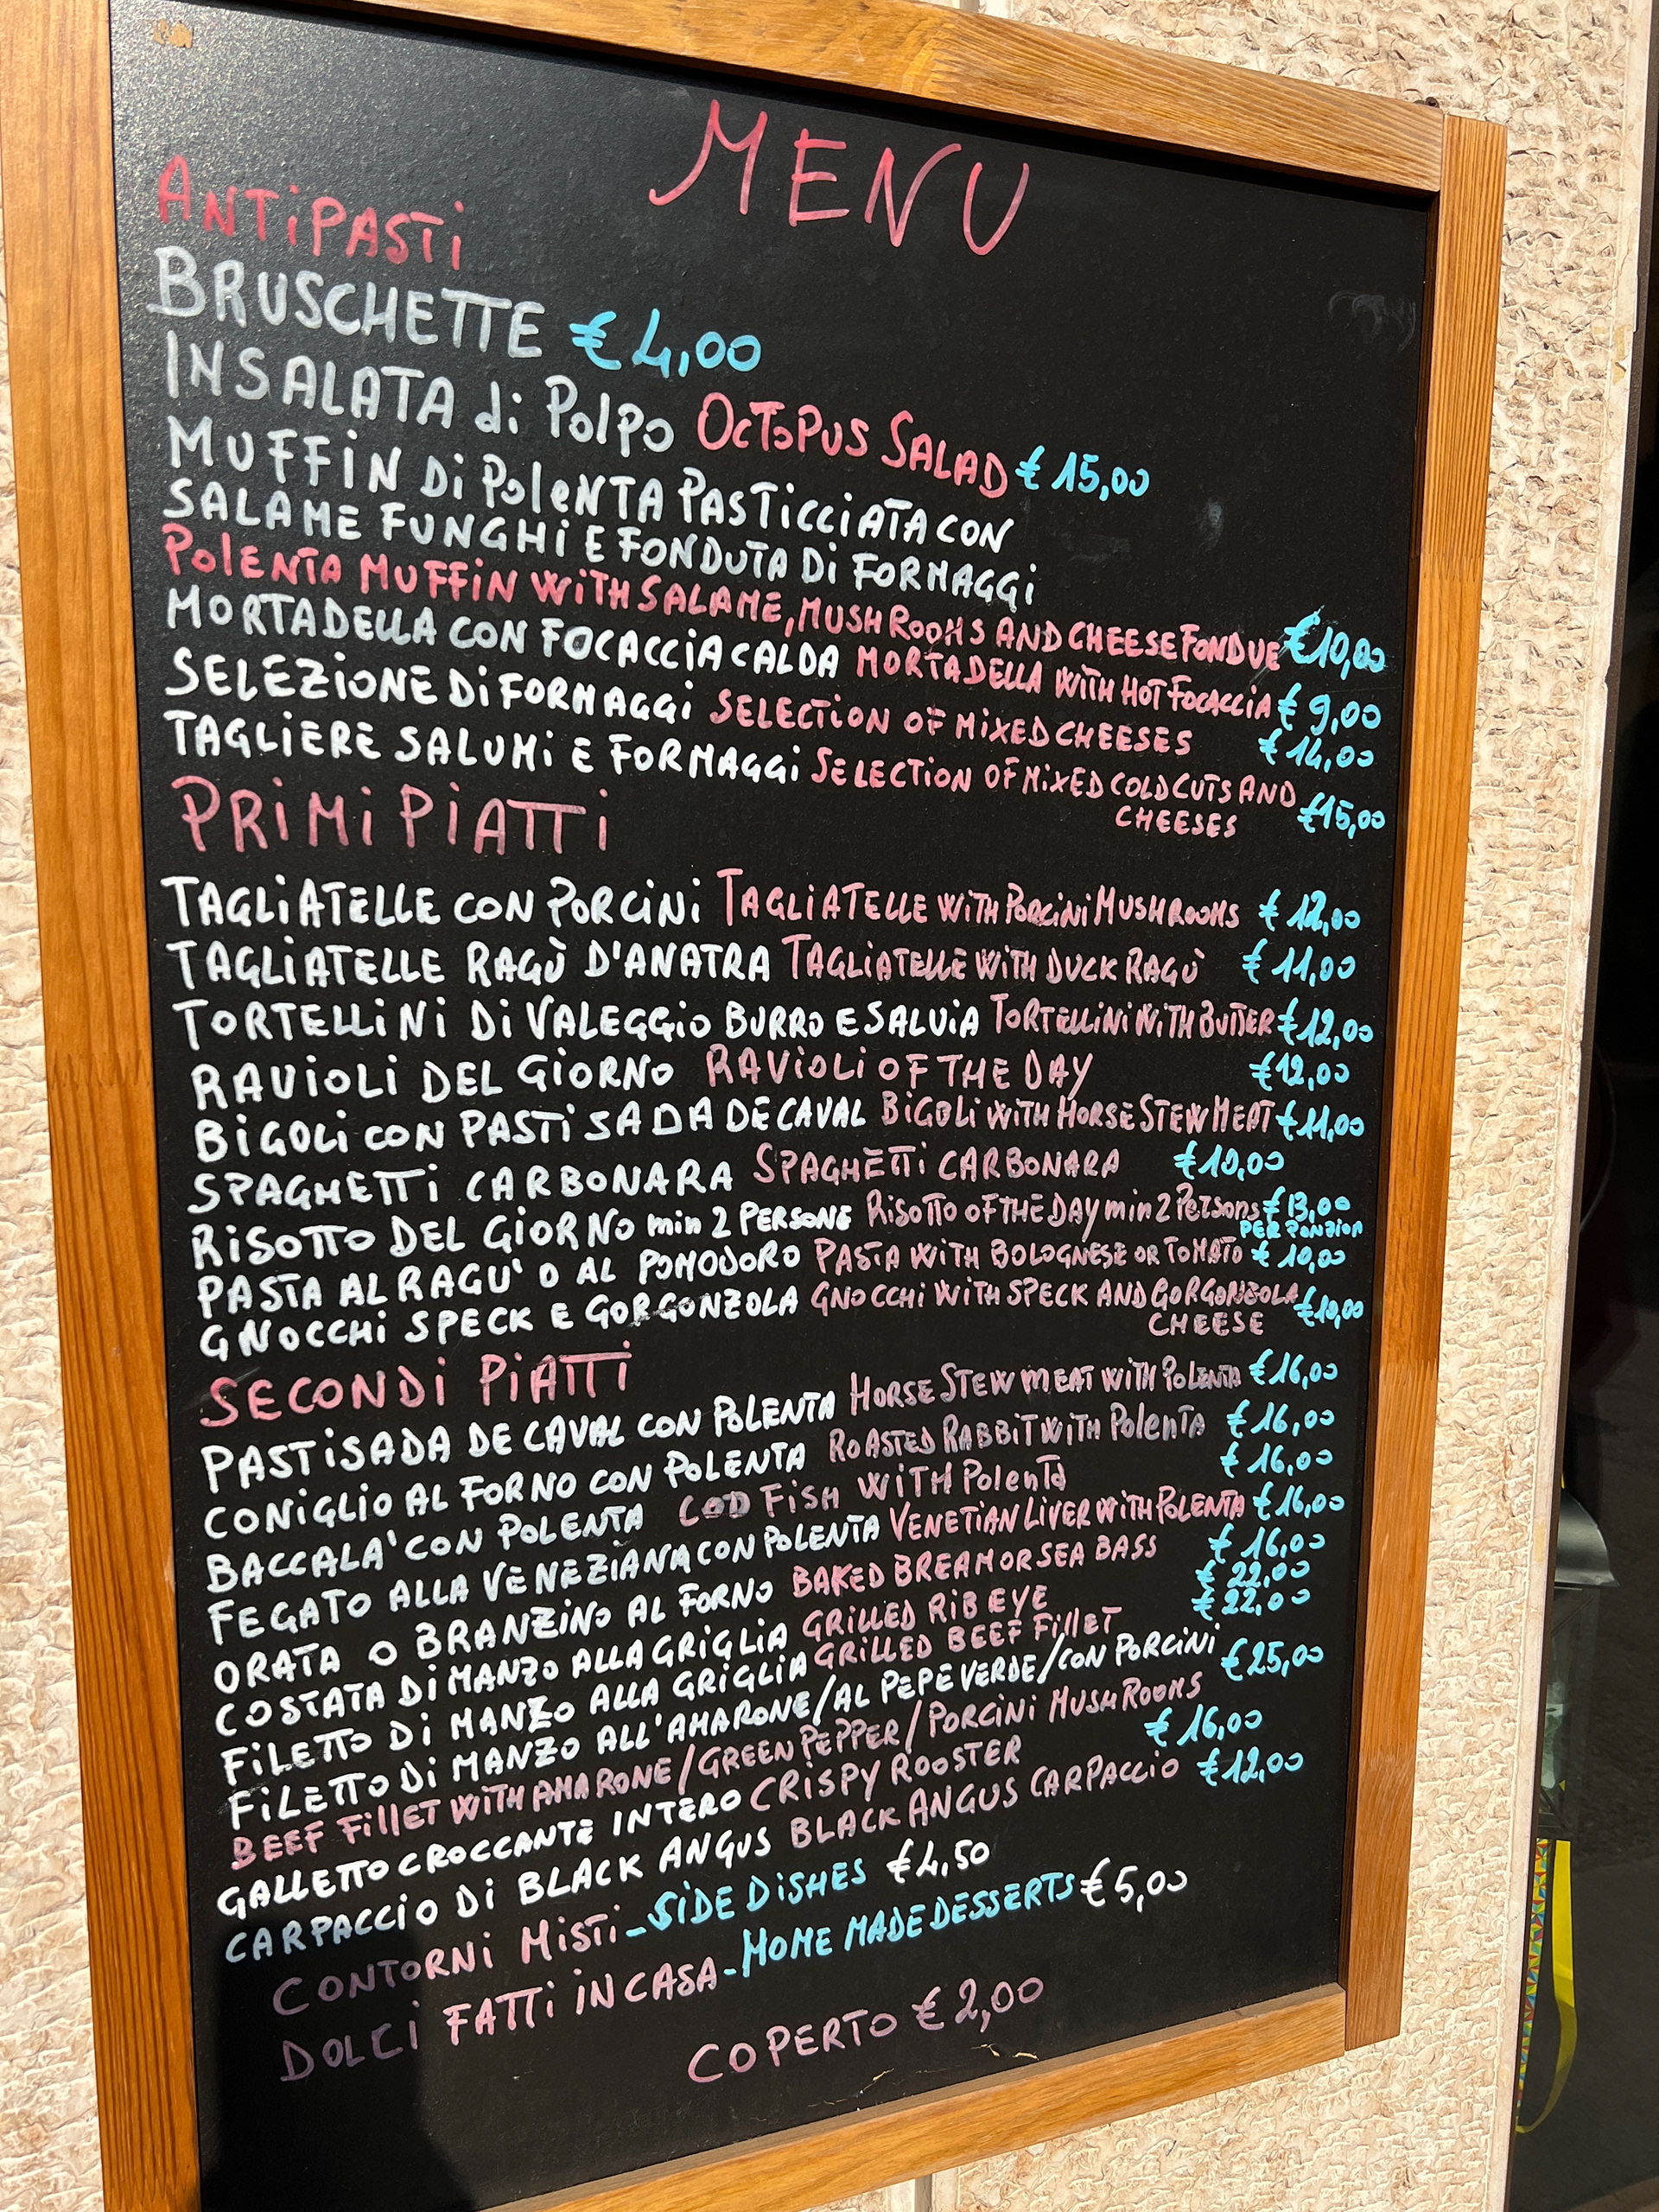 MENU
ANTIPASTI
BRUSCHETTE €4,00
INSALATA di Polpo OCTOPUS SALAD € 15,00
MUFFIN Di PolENTA PASTICCIATA CON
SALAME FUNGHI E FONDUTA Di FORMAGGI
PolENTA MUFFIN WITH SALAME, MUSHROOMS AND CHEESE FONDUE €10,00
MORTADELLA CON FOCACCIA CALDA MORTADELLA WITH HOT FOCACCIA € 9,00
SELEZIONE Di FORMAGGI SELECTION OF MIXED CHEESES € 14,00
TAGLIERE SALUMI E FORMAGGI SELECTION OF MIXED COLD CUTS AND
CHEESES €15,00
PRIMI PIATTI
TAGLIATELLE CON PORCINI TAGLIATELLE WITH PORCINI MUSHROOMS € 12,00
TAGLIATELLE RAGÙ D'ANATRA TAGLIATELLE WITH DUCK RAGÙ € 11,00
TORTELLINI DI VALEGGIO BURRO E SALVIA TORTELLINI WITH BUTTER €12,00
RAVIOLI DEL GIORNO RAVIOLI OF THE DAY €12,00
BIGOLI CON PASTISADA DE CAVAL BIGOLI WITH HORSE STEW MEAT €11,00
SPAGHETTI CARBONARA SPAGHETTI CARBONARA €10,00
RISOTTO DEL GIORNO min 2 PERSONE RISOTTO OF THE DAY min 2 Persons €13,00
PER PORZION
PASTA AL RAGU' O AL POMODORO PASTA WITH BOLOGNESE OR TOMATO € 10,00
GNOCCHI SPECK E GORGONZOLA GNOCCHI WITH SPECK AND GORGONZOLA €10,00
CHEESE
SECONDI PIATTI
PASTISADA DE CAVAL CON POLENTA HORSE STEW MEAT WITH POLENTA €16,00
CONIGLIO AL FORNO CON POLENTA ROASTED RABBIT WITH PolENTA € 16,00
BACCALA' CON POLENTA COD FISH WITH PolenTa € 16,00
FEGATO ALLA VENEZIANA CON POLENTA VENETIAN LIVER WITH POLENTA €16,00
ORATA O BRANZINO AL FORNO BAKED BREAM OR SEA BASS € 16,00
COSTATA Di MANZO ALLA GRIGLIA GRILLED RIB EYE € 22,00
FILETTO DI MANZO ALLA GRIGLIA GRILLED BEEF FILLET € 22,00
FILETTO Di MANZO ALL'AMARONE/AL PEPE VERDE/CON PORCINI €25,00
BEEF FILLET WITH AMARONE/GREEN PEPPER/PORCINI MUSHROOMS
GALLETTO CROCCANTE INTERO CRISPY ROOSTER € 16,00
CARPACCIO DI BLACK ANGUS BLACK ANGUS CARPACCIO €12,00
CONTORNI MISTI - SIDE DISHES €4,50
DOLCI FATTI IN CASA - HOME MADE DESSERTS € 5,00
COPERTO € 2,00